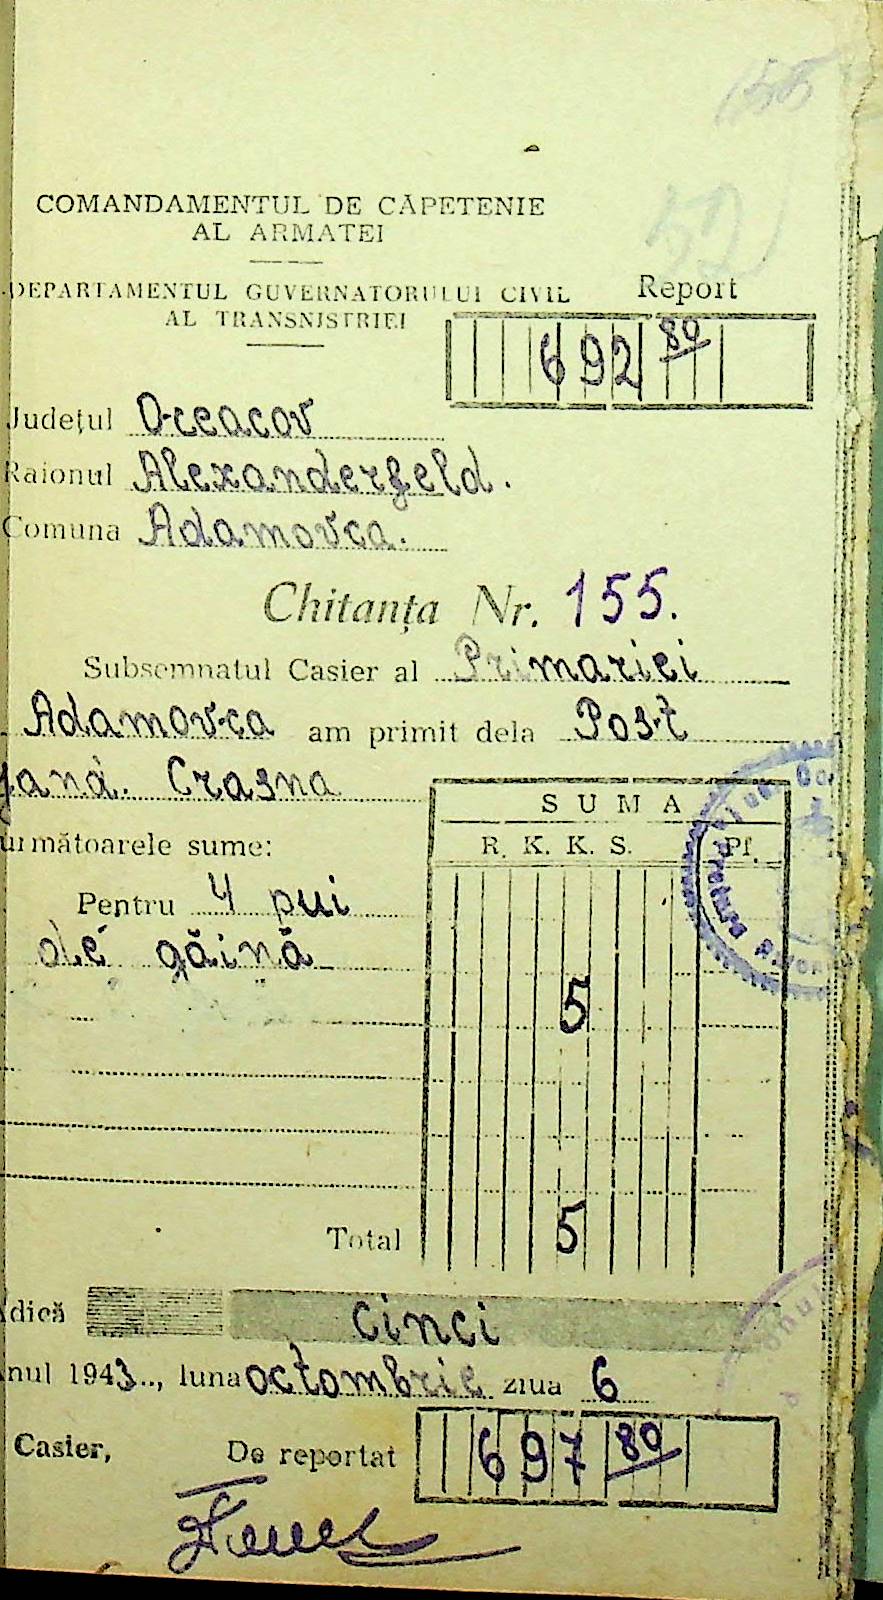 155
52
COMANDAMENTUL DE CĂPETENIE
AL ARMATEI
DEPARTAMENTUL GUVERNATORULUI CIVIL
AL TRANSNISTRIEI
Report
692 80
Județul Oceacov
Raionul Alexanderfeld.
Comuna Adamovca.
Chitanța Nr. 155.
Subsemnatul Casier al Primariei
Adamovca am primit dela Post
jand. Crasna
următoarele sume:
SUMA
R. K. K. S. Pf.
Pentru 4 pui
de găină
5
Total 5
Adică cinci
Anul 1943.., luna octombrie ziua 6
Casier, De reportat 697 80